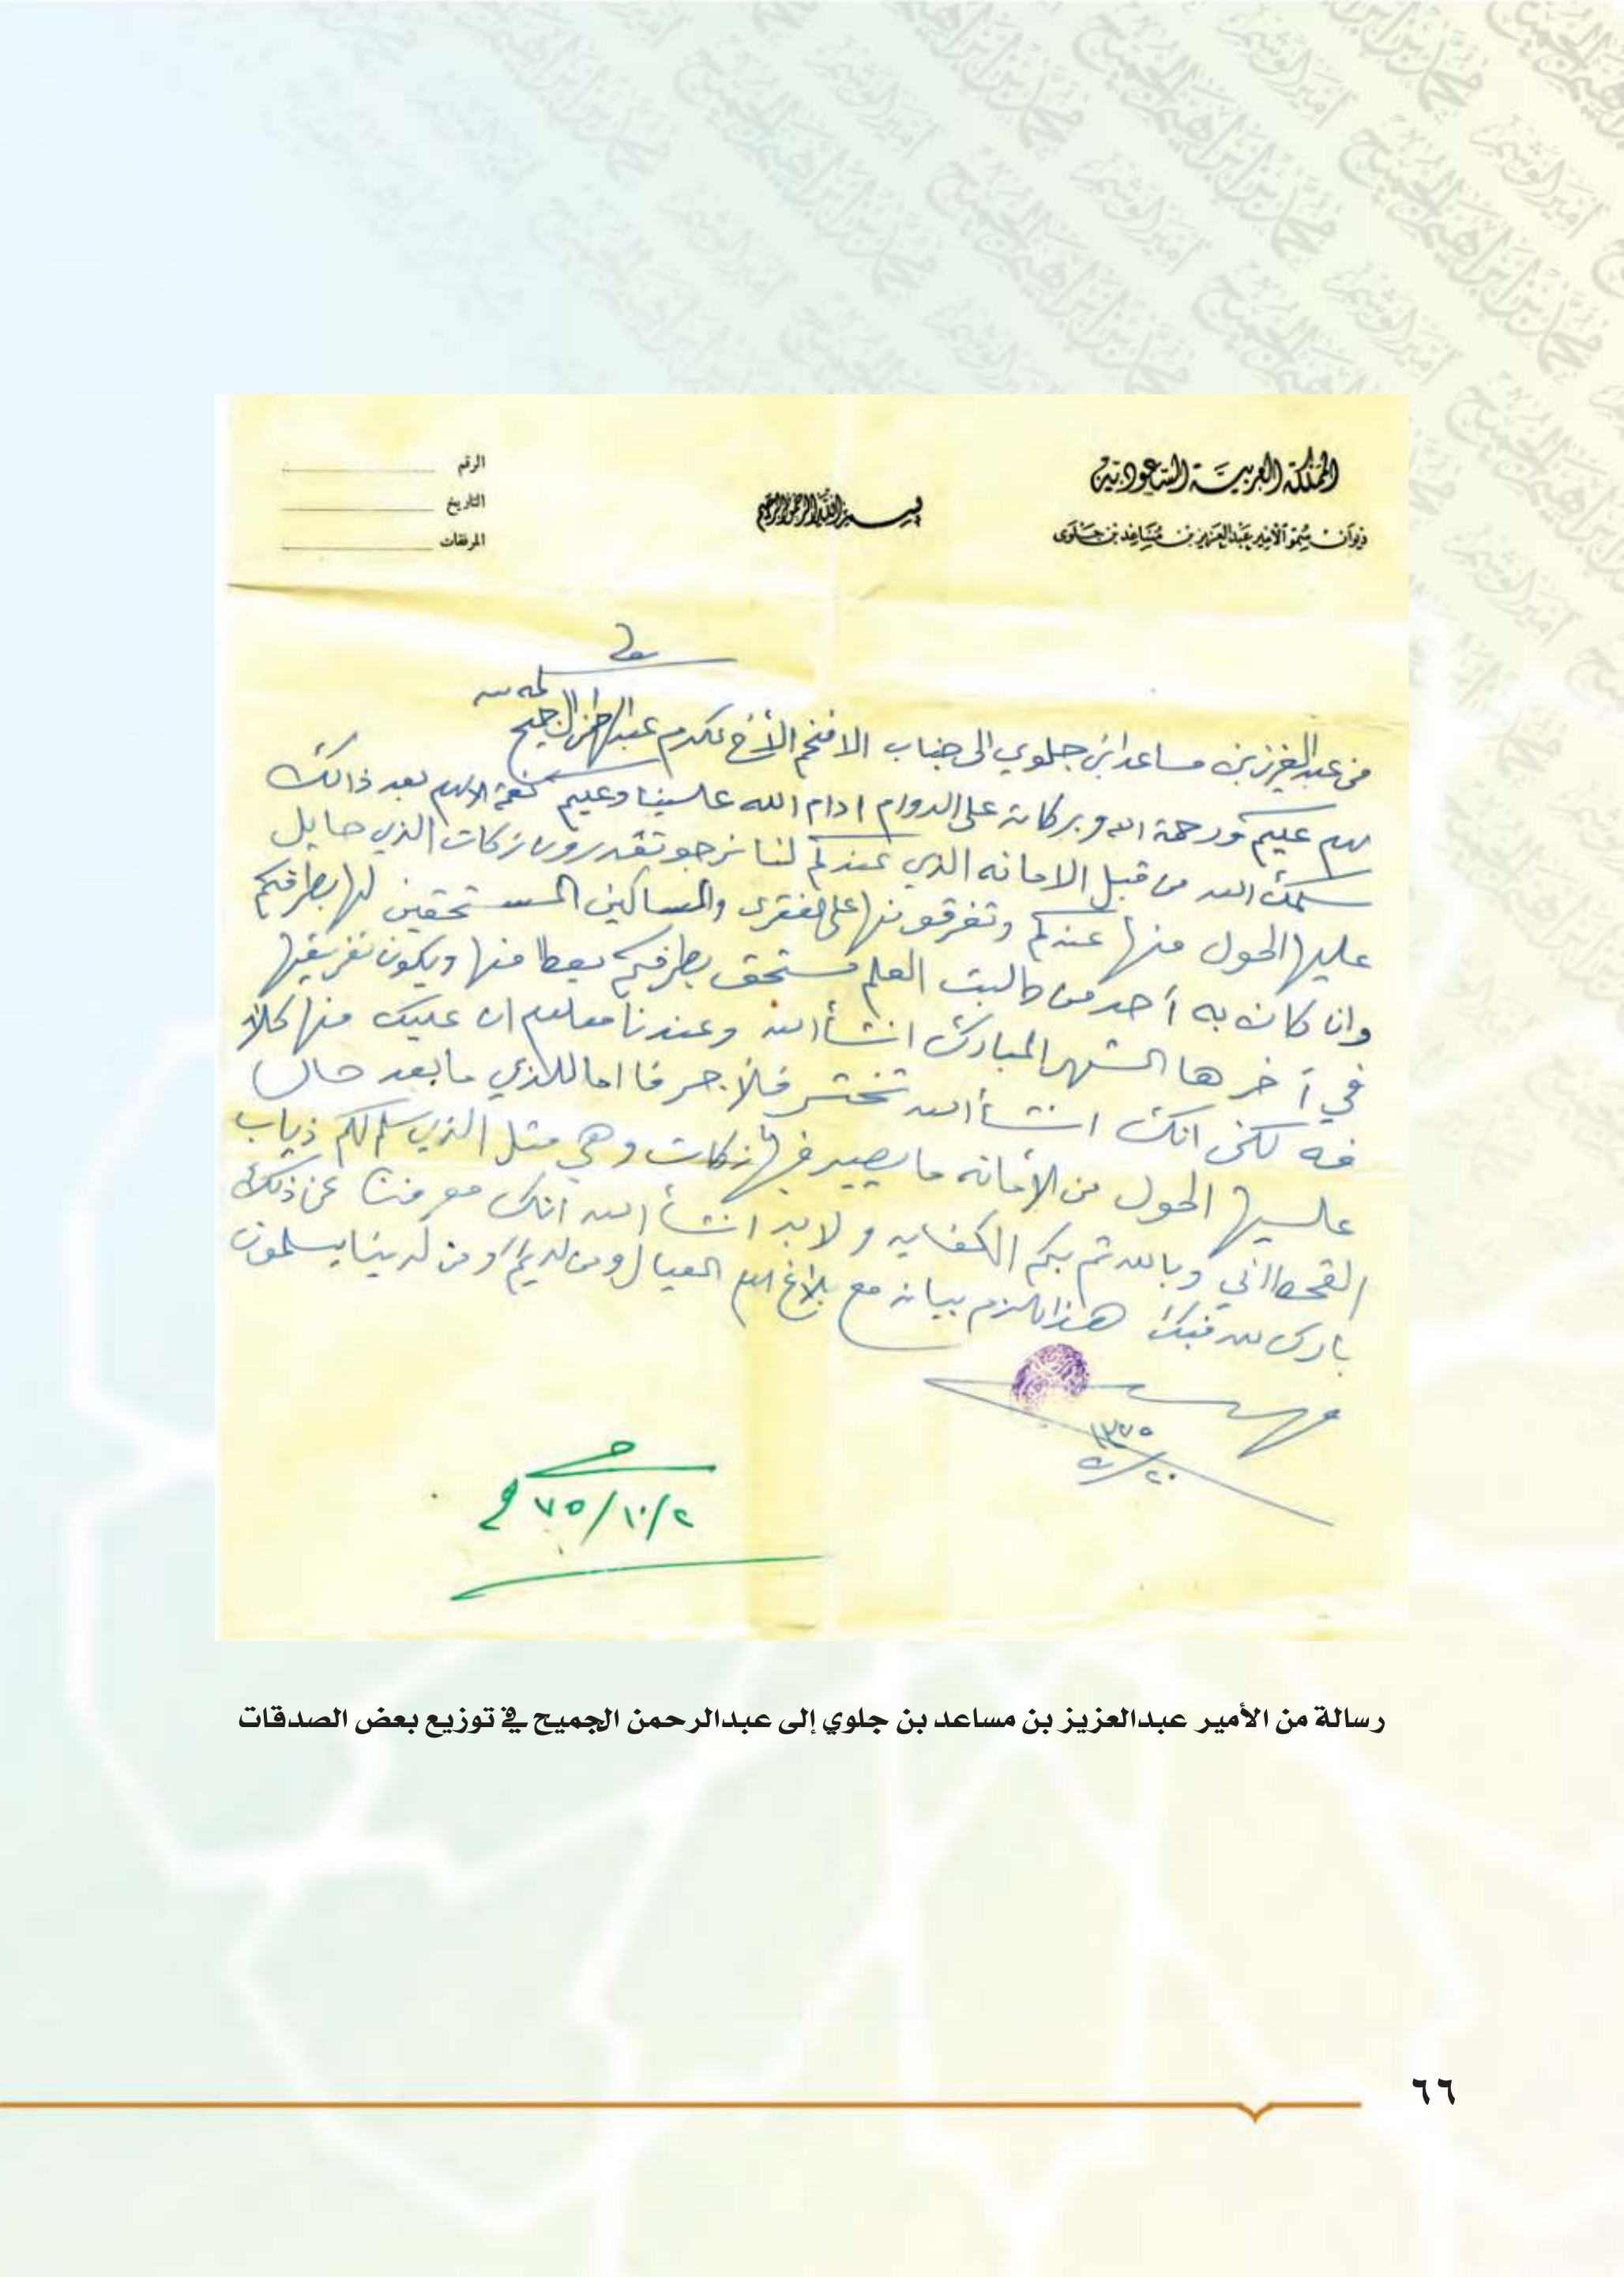 المملكة العربية السعودية
ديوان سمو الأمير عبدالعزيز بن مساعد بن جلوى
بسم الله الرحمن الرحيم
الرقم
التاريخ
المرفقات
من عبدالعزيز بن مساعد ابن جلوي الى جناب الافخم الأخ المكرم عبدالرحمن الجميح سلمه الله
السلام عليكم ورحمة الله وبركاته على الدوام ادام الله علينا وعليكم نعمة الاسلام بعد ذالك
سلمك الله من قبل الامانه الذي عندكم لنا نرجو تقدرون زكات الذي حايل
عليها الحول منها عندكم وتفرقونها على الفقرى والمساكين المستحقين لها بطرفكم
وان كان به أحد من طالبت العلم مستحق بطرفكم يعطا منها ويكون تفريقها
في آخر ها الشهر المبارك انشأالله وعندنا معلوم ان عليك منها كلافه
فه لكن انك انشأالله تختسر فلأجر فا اما للذي مابعد حال
عليها الحول من الأمانه ما يصير فيها زكات وهي مثل الذي سلم لكم ذياب
القحطاني وبالله ثم بكم الكفايه ولابد انشأ الله انك معرفنا عن ذلك
بارك الله فيك هذا مالزم بيانه مع بلاغ السلام العيال ومن لديكم ومن لدينا يسلمون
١٣٧٥
٢٠/٩
٢/١٠/٧٥
رسالة من الأمير عبدالعزيز بن مساعد بن جلوي إلى عبدالرحمن الجميح في توزيع بعض الصدقات
٦٦